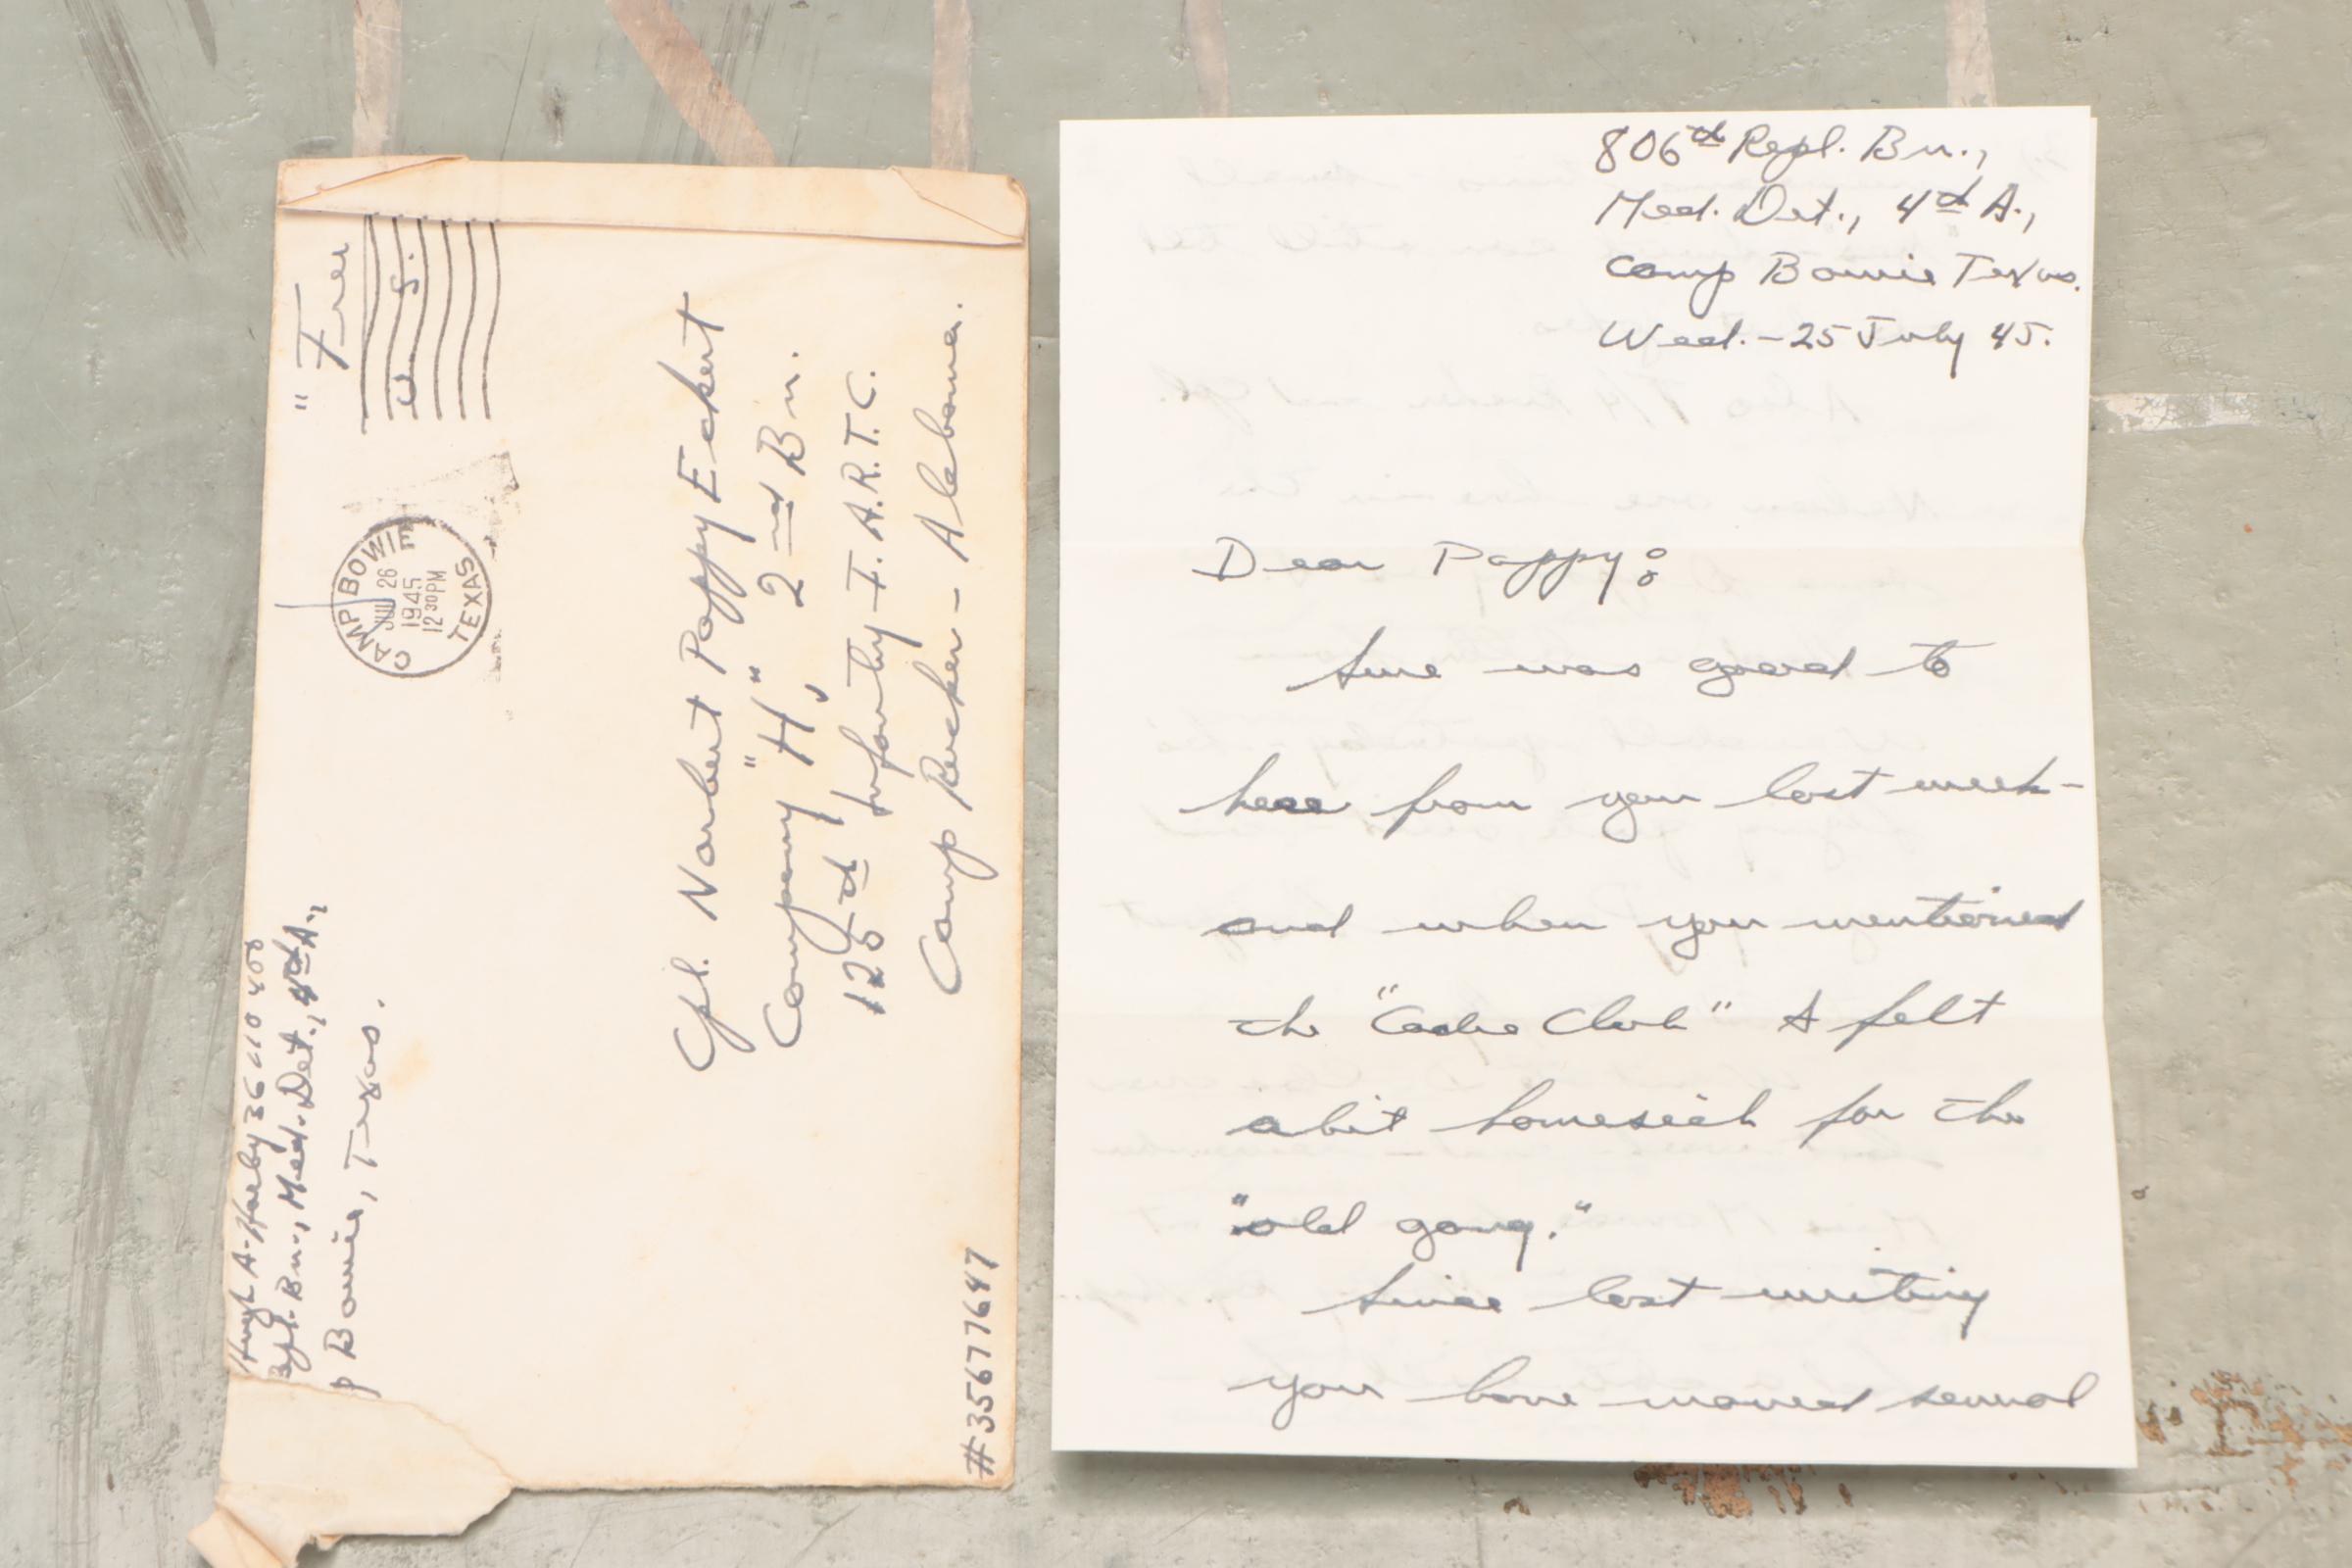 "Free
U. S.
CAMP BOWIE
JUL 26
1945
12 30 PM
TEXAS
Hugh A. 36
Repl. Bn., Med. Det., 4th A.,
p Bowie, Texas.
Cpl. Norbert Poppy Eckert
Company "H", 2nd Bn.
125th Infantry I.A.R.T.C.
Camp Rucker - Alabama.
#35677647
806th Repl. Bn.,
Med. Det., 4th A.,
Camp Bowie Texas.
Wed. - 25 July 45.
Dear Poppy:
Sure was good to
hear from you last week -
and when you mentioned
the " Club" I felt
a bit homesick for the
"old gang."
Since last writing
you have moved several